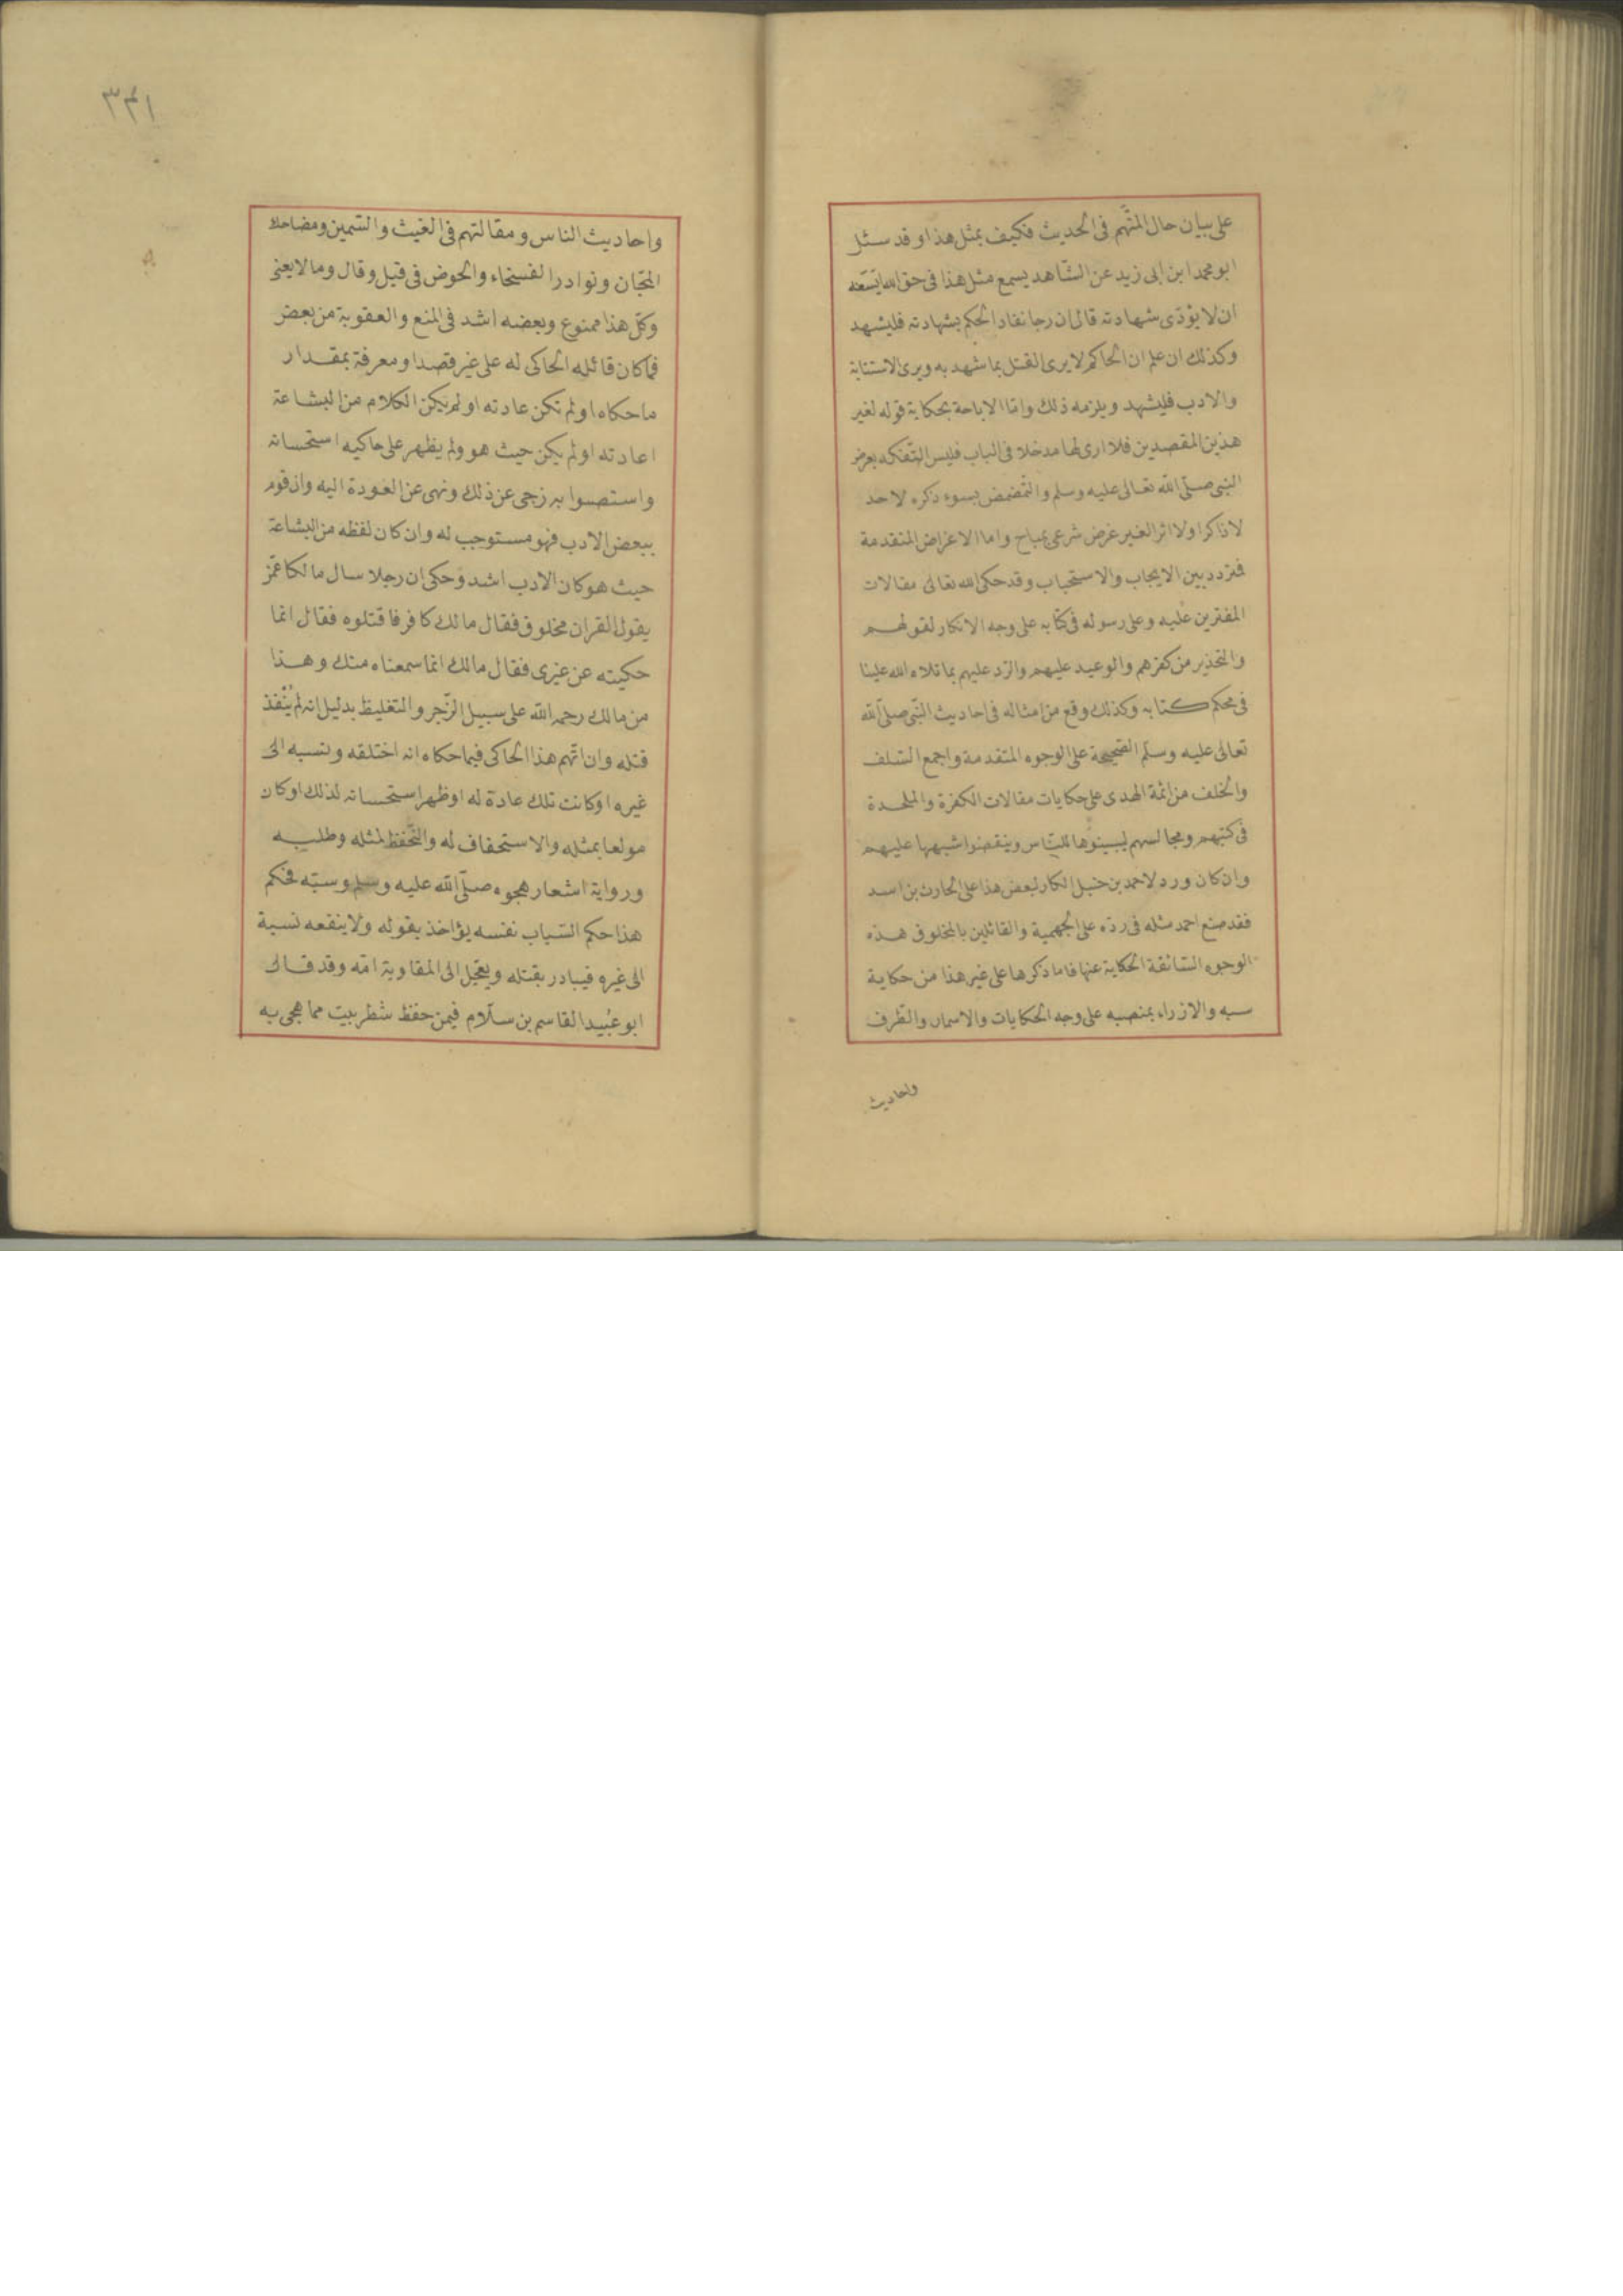 على بيان حال المتّهم فى الحديث فكيف بمثل هذا وقد سئل
ابو محمد ابن ابى زيد عن الشاهد يسمع مثل هذا فى حق الله ايسعه
ان لا يؤدّى شهادته قال ان رجا نفاد الحكم بشهادته فليشهد
وكذلك ان علم ان الحاكم لا يرى القتل بما شهد به ويرى الاستتابة
والادب فليشهد ويلزمه ذلك واما الاباحة بحكاية قوله لغير
هذين المقصدين فلا ارى لها مدخلا فى الباب فليس التّفكه بعرض
النبى صلّى الله تعالى عليه وسلم والتمضمض بسوء ذكره لاحد
لا ذاكرا ولا اثرا لغير غرض شرعى بمباح واما الاغراض المتقدمة
فتردد بين الايجاب والاستحباب وقد حكى الله تعالى مقالات
المفترين عليه وعلى رسوله فى كتابه على وجه الانكار لقولهم
والتحذير من كفرهم والوعيد عليهم والرّد عليهم بما تلاه الله علينا
فى محكم كتابه وكذلك وقع من امثاله فى احاديث النّبى صلّى الله
تعالى عليه وسلم الصحيحة على الوجوه المتقدمة واجمع السّلف
والخلف من ائمة الهدى على حكايات مقالات الكفرة والملحدة
فى كتبهم ومجالسهم ليبينوها للنّاس وينقضوا شبهها عليهم
وان كان ورد لاحمد بن حنبل انكار لبعض هذا على الحارث بن اسد
فقد صنع احمد مثله فى ردّه على الجهمية والقائلين بالمخلوق هذه
الوجوه السّائقة الحكاية عنها فاما ذكرها على غير هذا من حكاية
سبه والازراء بمنصبه على وجه الحكايات والاسمار والطرف
واحاديث
٣٣١
واحاديث الناس ومقالتهم فى الغيث والسّمين ومضاحك
المجّان ونوادر السخفاء والخوض فى قيل وقال وما لا يعنى
وكلّ هذا ممنوع وبعضه اشد فى المنع والعقوبة من بعض
فما كان قائله الحاكى له على غير قصد او معرفة بمقدار
ما حكاه او لم تكن عادته او لم يكن الكلام من البشاعة
اعادته او لم يكن حيث هو ولم يظهر على حاكيه استحسانه
واستصوابه زجى عن ذلك ونهى عن العودة اليه وان قوم
ببعض الادب فهو مستوجب له وان كان لفظه من البشاعة
حيث هو كان الادب اشد وحكى ان رجلا سال مالكا عمّن
يقول القران مخلوق فقال مالك كافر فاقتلوه فقال انما
حكيته عن غيرى فقال مالك انما سمعناه منك وهذا
من مالك رحمه الله على سبيل الزّجر والتغليظ بدليل انه لم يُنْفذ
قتله وان اتّهم هذا الحاكى فيما حكاه انه اختلقه ونسبه الى
غيره او كانت تلك عادة له او ظهر استحسانه لذلك او كان
مولعا بمثله والاستخفاف له والتّحفظ لمثله وطلبه
ورواية اشعار هجوه صلّى الله عليه وسلم وسبّه فحكم
هذا حكم السّباب نفسه يؤاخذ بقوله ولا ينفعه نسبة
الى غيره فيبادر بقتله ويعجّل الى الهاوية امّه وقد قال
ابو عُبيد القاسم بن سلّام فيمن حفظ شطر بيت مما هجى به